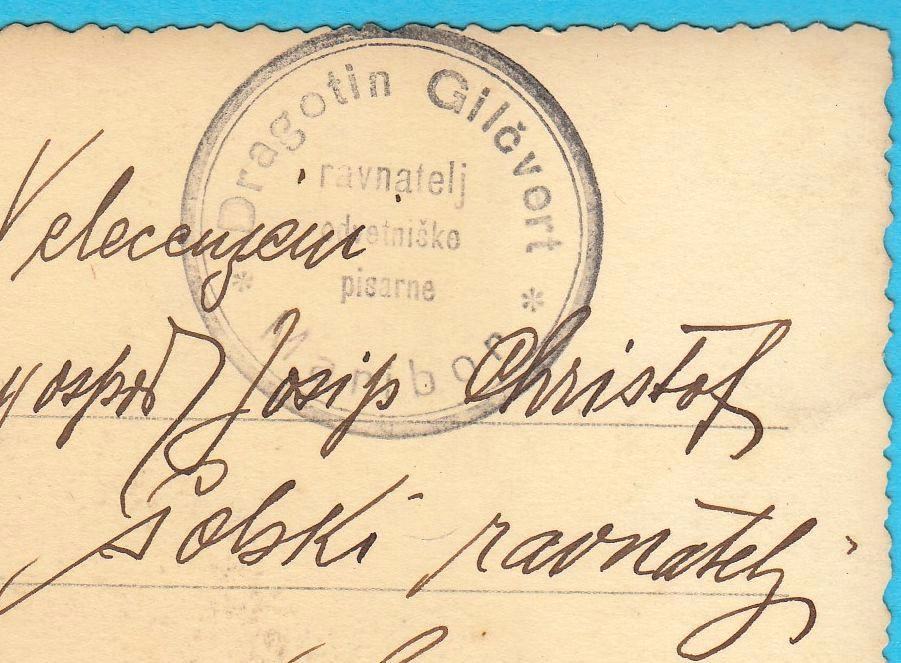 Dragotin Gilčvort
ravnatelj
odvetniške
pisarne
* Maribor *
Velecenjeni
gospod Josip Christof
šolski ravnatelj